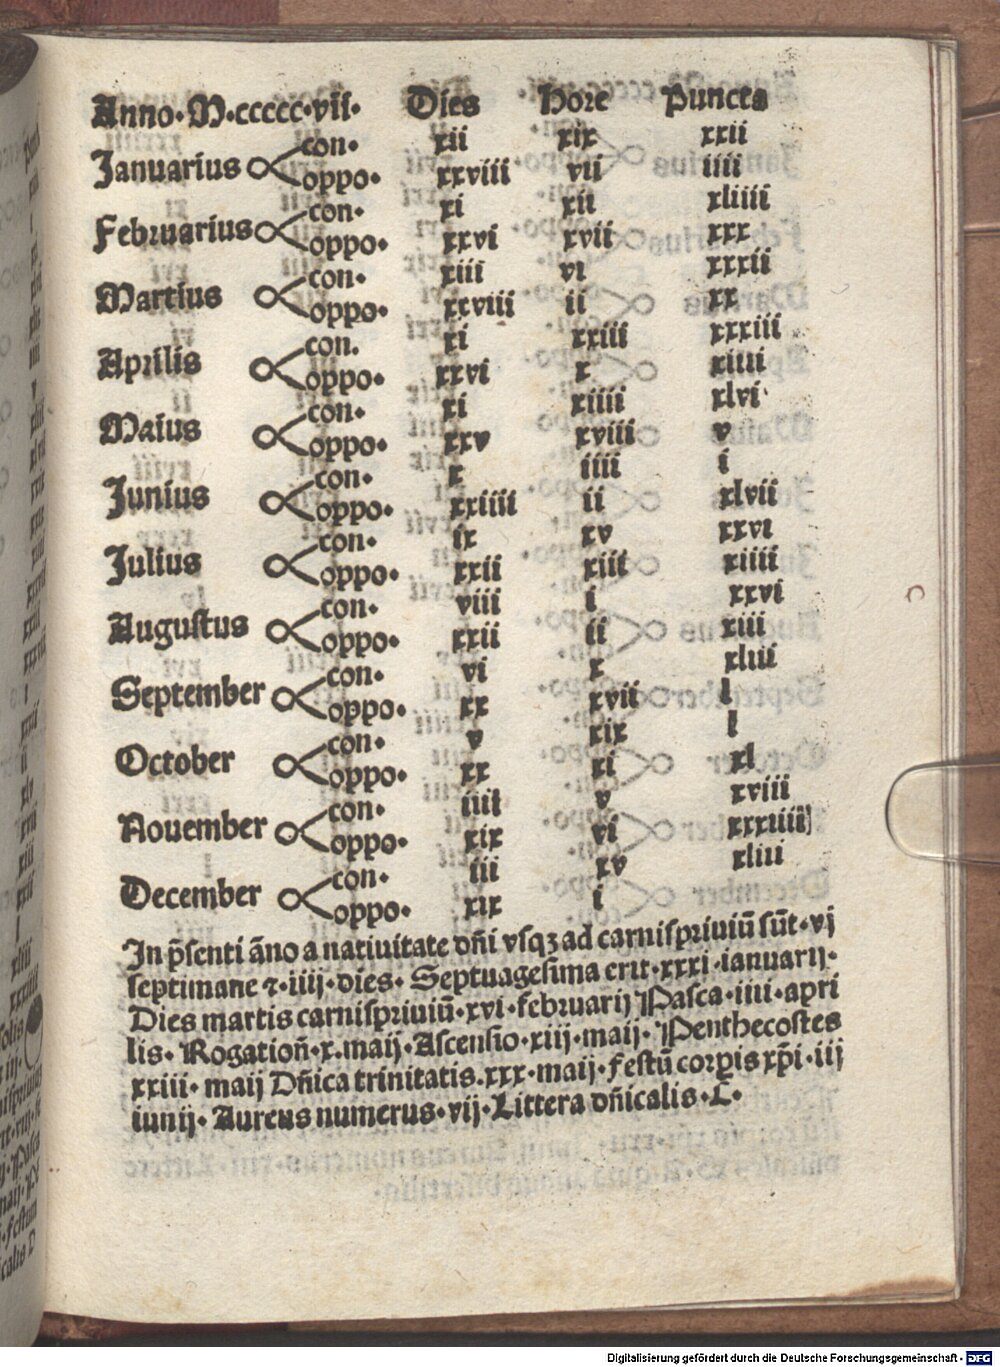 Anno·M·ccccc·vii· Dies Hore Puncta
con· xii xix xxii
Januarius
oppo· xxviii vii iiii
con· xi xii xliiii
Februarius
oppo· xxvi xvii xxx
con· xiii vi xxxii
Martius
oppo· xxviii ii xx
con. xi xxiii xxxiii
Aprilis
oppo· xxvi x xiiii
con· xi xiiii xlvi
Maius
oppo· xxv xviii v
con· x iiii i
Junius
oppo· xxiiii ii xlvii
con· ix xv xxvi
Julius
oppo· xxii xiii xiiii
con· viii i xxvi
Augustus
oppo· xxii ii xiii
con· vi x xliii
September
oppo· xx xvii l
con· v xix l
October
oppo· xx xi xl
con· iiii v xviii
Nouember
oppo· xix vi xxxiiii
con· iii xv xliii
December
oppo· xix i
In p̄senti āno a natiuitate dn̄i vsqꝫ ad carnispriuiū sūt·vj
septimane ⁊·iiij·dies· Septuagesima erit·xxxi·ianuarij·
Dies martis carnispriuiū·xvi·februarij Pasca·iiii·apri
lis· Rogation̄·x.maij·Ascensio·xiij·maij·Penthecostes
xxiii·maij Dn̄ica trinitatis.xxx·maij·festū corpis xp̄i·iij
iunij·Aureus numerus·vij·Littera dn̄icalis·C·
Digitalisierung gefördert durch die Deutsche Forschungsgemeinschaft · DFG